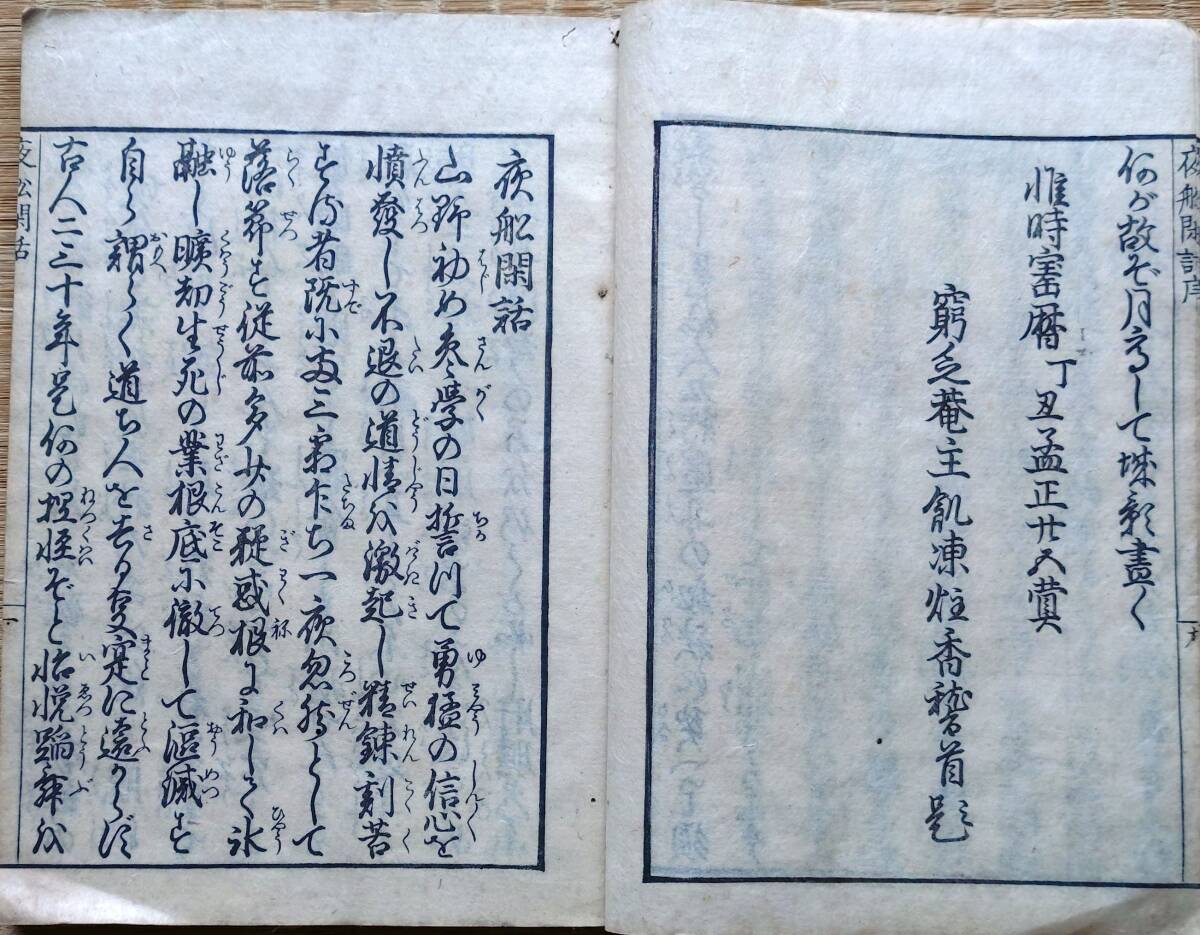 夜船閑話序
何が故ぞ月高して城影盡く
惟時宝暦丁丑孟正廿五蓂
窮乏菴主飢凍炷香稽首題
夜船閑話
山野初め参學の日誓つて勇猛の信心を
憤發し不退の道情を激起し精錬刻苦
する者既に両三霜乍ち一夜忽然として
落節す従前多少の疑惑根に和して氷
融し曠劫生死の業根底に徹して漚滅す
自ら謂らく道ち人を去る事寔に遠からず
古人二三十年是何の捏怪ぞと怡悦蹈舞を
夜船閑話